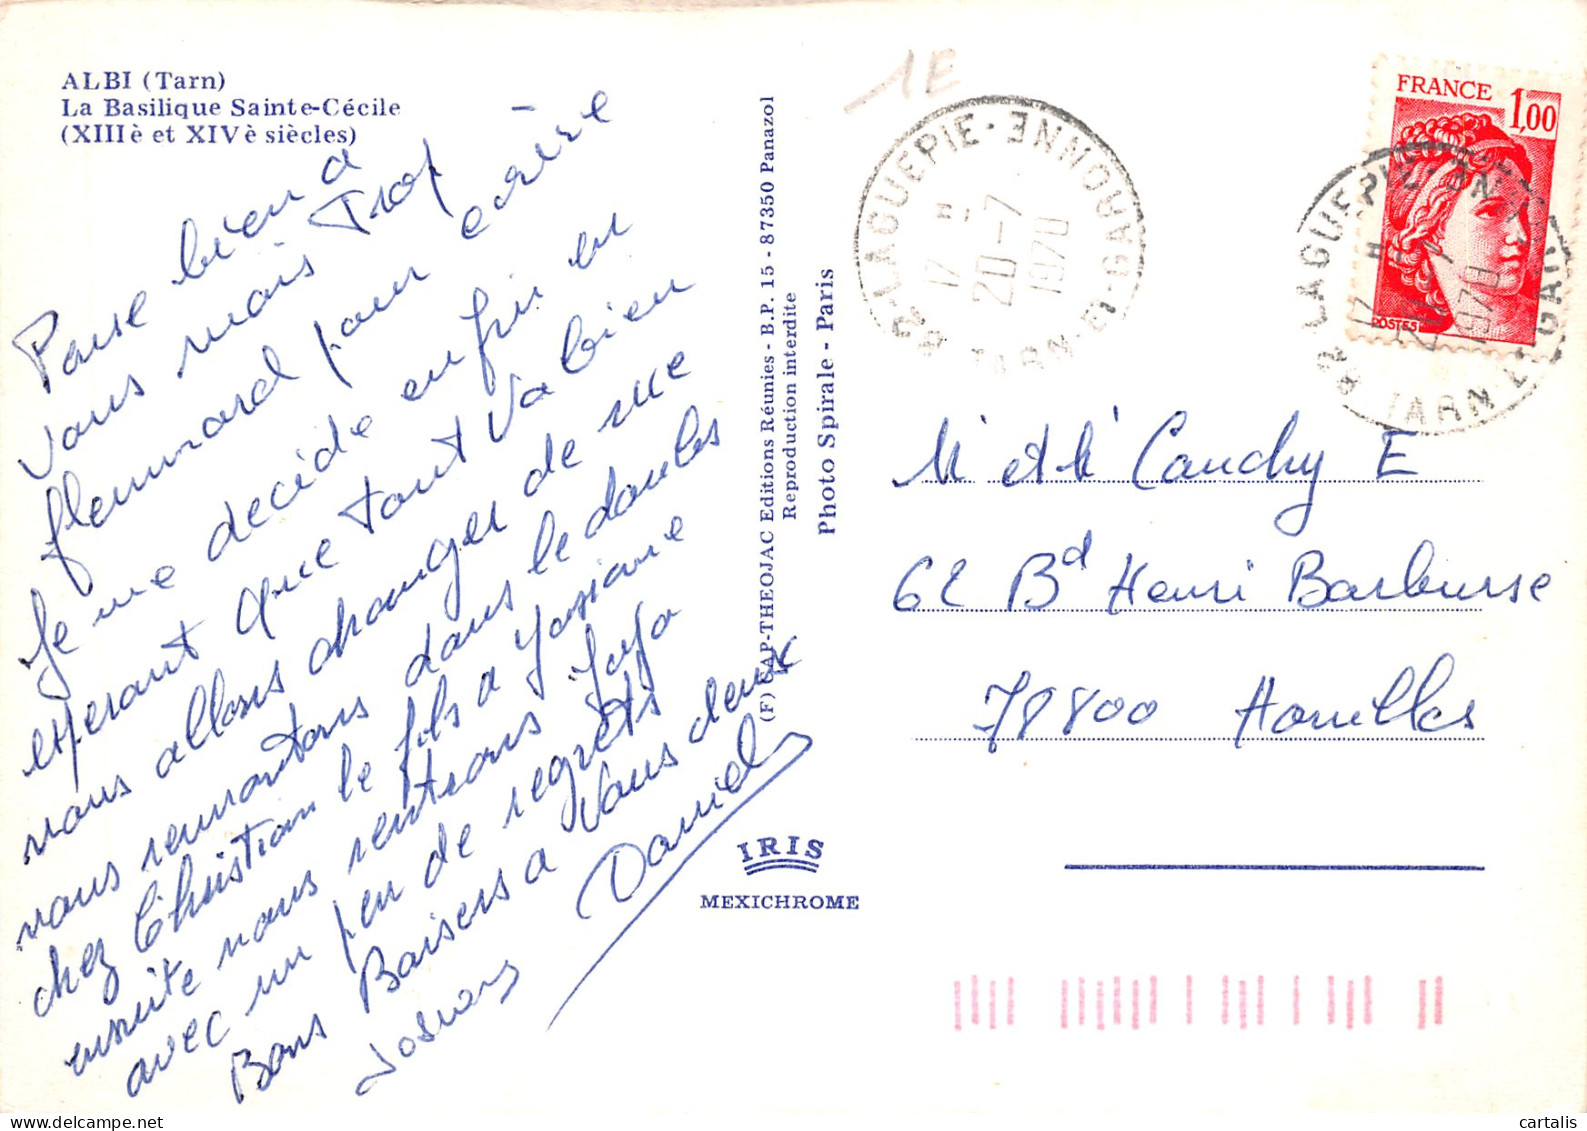 ALBI (Tarn)
La Basilique Sainte-Cécile
(XIIIè et XIVè siècles)
Pense bien a
vous mais Trop
flemmard pour ecrire
Je me decide enfin en
esperant que tout va bien
nous allons changer de rue
nous remontons dans le doubs
chez Christian le fils a Josiane
ensuite nous rentrons
avec un peu de regrets
Bons Baisers a vous deux
Daniel
(F) CAP-THEOJAC Editions Réunies - B.P. 15 - 87350 Panazol
Reproduction interdite
Photo Spirale - Paris
IRIS
MEXICHROME
1E
82-LAGUEPIE-ENNOUAG-ET-NRAT
17 H
20-7
1970
FRANCE
1,00
POSTES
82 LAGUEPIE
17 H
1970
Mr et Me Cauchy E
62 Bd Henri Barbusse
78800 Houilles
cartalis